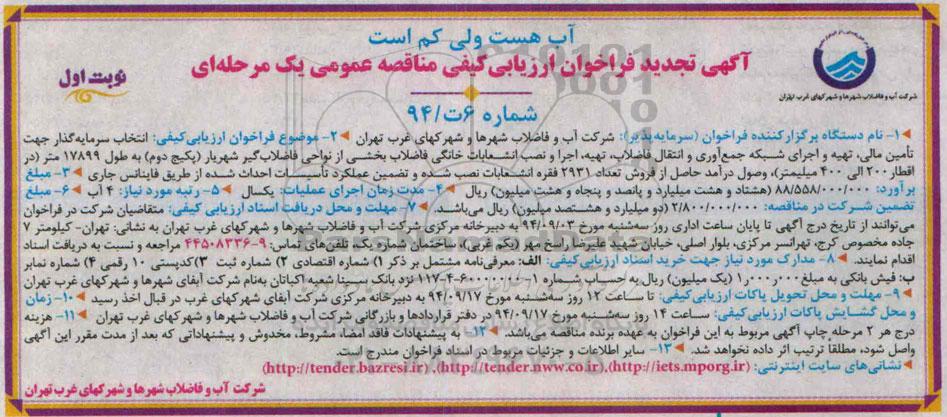 آب هست ولی کم است
آگهی تجدید فراخوان ارزیابی کیفی مناقصه عمومی یک مرحله‌ای
نوبت اول
شرکت آب و فاضلاب شهرها و شهرکهای غرب تهران
شماره ۶ت/۹۴
۱- نام دستگاه برگزارکننده فراخوان (سرمایه‌پذیر): شرکت آب و فاضلاب شهرها و شهرکهای غرب تهران ۲- موضوع فراخوان ارزیابی‌کیفی: انتخاب سرمایه‌گذار جهت
تأمین مالی، تهیه و اجرای شبکه جمع‌آوری و انتقال فاضلاب، تهیه، اجرا و نصب انشعابات خانگی فاضلاب بخشی از نواحی فاضلاب‌گیر شهریار (پکیج دوم) به طول ۱۷۸۹۹ متر (در
اقطار ۲۰۰ الی ۴۰۰ میلیمتر)، وصول درآمد حاصل از فروش تعداد ۲۹۳۱ فقره انشعابات نصب شده و تضمین عملکرد تأسیسات احداث شده از طریق فاینانس جاری ۳- مبلغ
برآورد: ۸۸/۵۵۸/۰۰۰/۰۰۰ (هشتاد و هشت میلیارد و پانصد و پنجاه و هشت میلیون) ریال ۴- مدت زمان اجرای عملیات: یکسال ۵- رتبه مورد نیاز: ۴ آب ۶- مبلغ
تضمین شرکت در مناقصه: ۲/۸۰۰/۰۰۰/۰۰۰ (دو میلیارد و هشتصد میلیون) ریال می‌باشد. ۷- مهلت و محل دریافت اسناد ارزیابی کیفی: متقاضیان شرکت در فراخوان
می‌توانند از تاریخ درج آگهی تا پایان ساعت اداری روز سه‌شنبه مورخ ۹۴/۰۹/۰۳ به دبیرخانه مرکزی شرکت آب و فاضلاب شهرها و شهرکهای غرب تهران به نشانی: تهران- کیلومتر ۷
جاده مخصوص کرج، تهرانسر مرکزی، بلوار اصلی، خیابان شهید علیرضا راسخ مهر (یکم غربی)، ساختمان شماره یک، تلفن‌های تماس: ۹-۴۴۵۰۸۳۳۶ مراجعه و نسبت به دریافت اسناد
اقدام نمایند. ۸- مدارک مورد نیاز جهت خرید اسناد ارزیابی‌کیفی: الف: معرفی‌نامه مشتمل بر ذکر ۱) شماره اقتصادی ۲) شماره ثبت ۳) کدپستی ۱۰ رقمی ۴) شماره نمابر
ب: فیش بانکی به مبلغ ۱۰۰۰۰۰۰ (یک میلیون) ریال به حساب شماره نزد بانک سینا شعبه اکباتان به‌نام شرکت آبفای شهرها و شهرکهای غرب تهران
۹- مهلت و محل تحویل پاکات ارزیابی‌کیفی: تا ساعت ۱۲ روز سه‌شنبه مورخ ۹۴/۰۹/۱۷ به دبیرخانه مرکزی شرکت آبفای شهرهای غرب در قبال اخذ رسید ۱۰- زمان
و محل گشایش پاکات ارزیابی‌کیفی: ساعت ۱۴ روز سه‌شنبه مورخ ۹۴/۰۹/۱۷ در دفتر قراردادها و بازرگانی شرکت آب و فاضلاب شهرها و شهرکهای غرب تهران ۱۱- هزینه
درج هر ۲ مرحله چاپ آگهی مربوط به این فراخوان به عهده برنده مناقصه می‌باشد. ۱۲- به پیشنهادات فاقد امضا، مشروط، مخدوش و پیشنهاداتی که بعد از مدت مقرر این آگهی
واصل شود، مطلقاً ترتیب اثر داده نخواهد شد. ۱۳- سایر اطلاعات و جزئیات مربوط در اسناد فراخوان مندرج است.
نشانی‌های سایت اینترنتی: (http://iets.mporg.ir)، (http://tender.nww.co.ir)، (http://tender.bazresi.ir)
شرکت آب و فاضلاب شهرها و شهرکهای غرب تهران